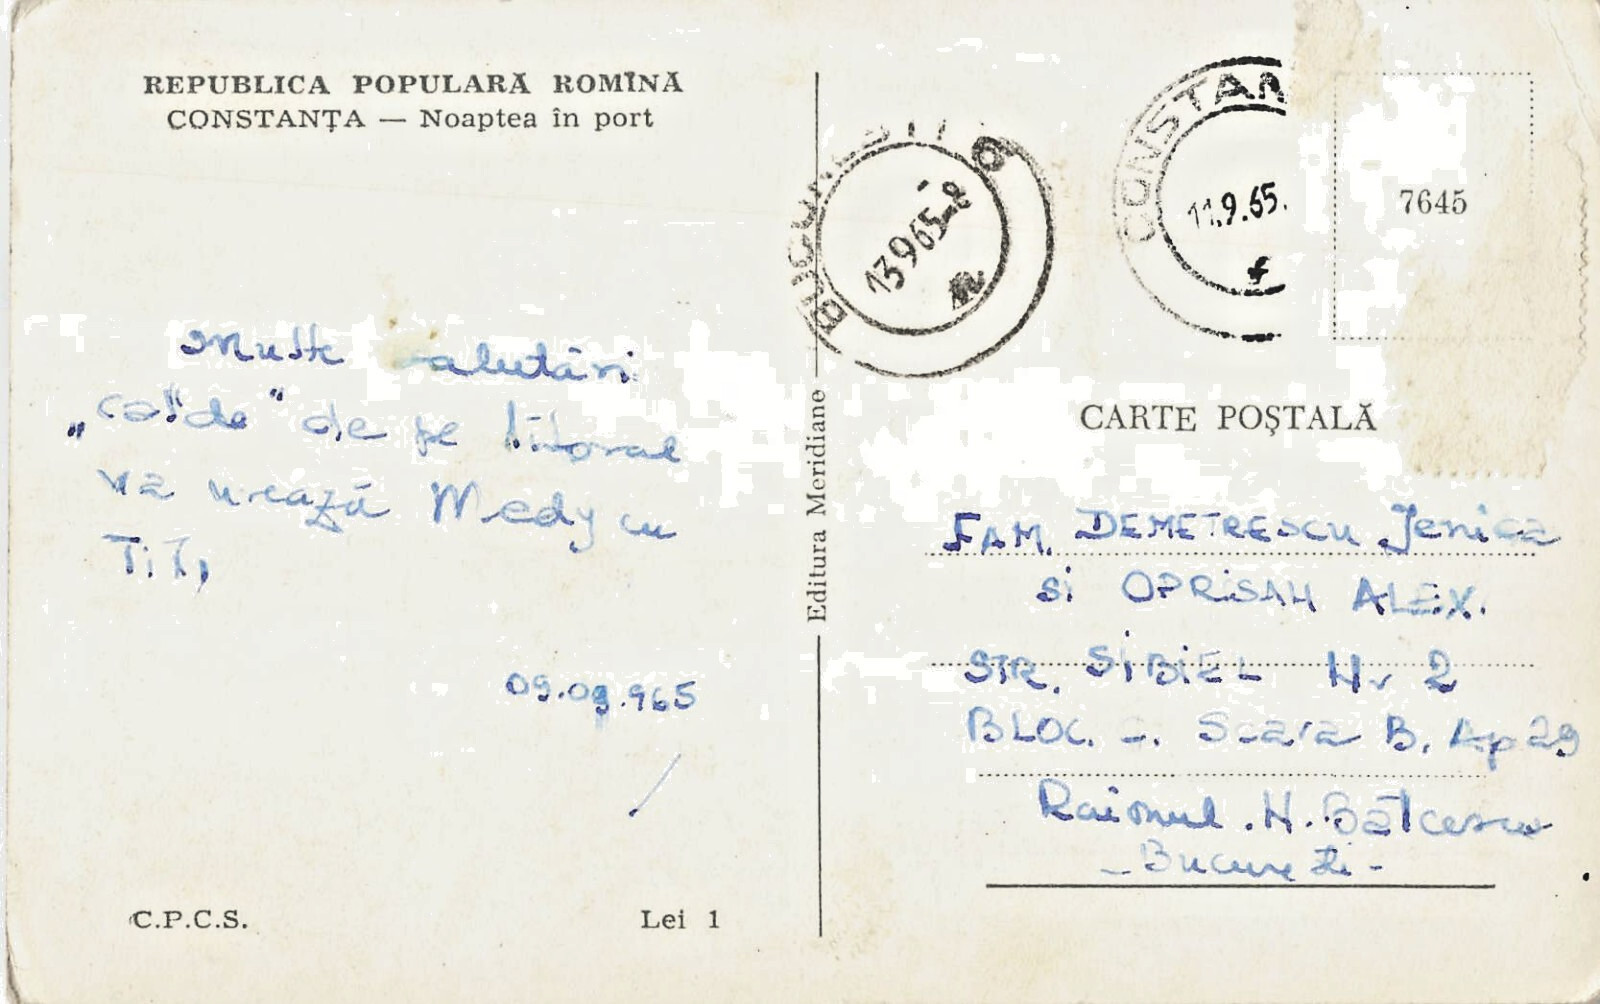 REPUBLICA POPULARĂ ROMÎNĂ
CONSTANȚA — Noaptea în port
Multe salutări
„calde" de pe litoral
vă urează Medy cu
Titi
09.09.965
C.P.C.S.
Lei 1
Editura Meridiane
BUCUREȘTI
13.9.65-8
CONSTAN
11.9.65.
f
7645
CARTE POȘTALĂ
FAM. DEMETRESCU Jenica
si OPRISAN ALEX.
STR. SIBIEL Nr 2
BLOC. Scara B. Ap 29
Raionul. N. Bălcescu
- București -